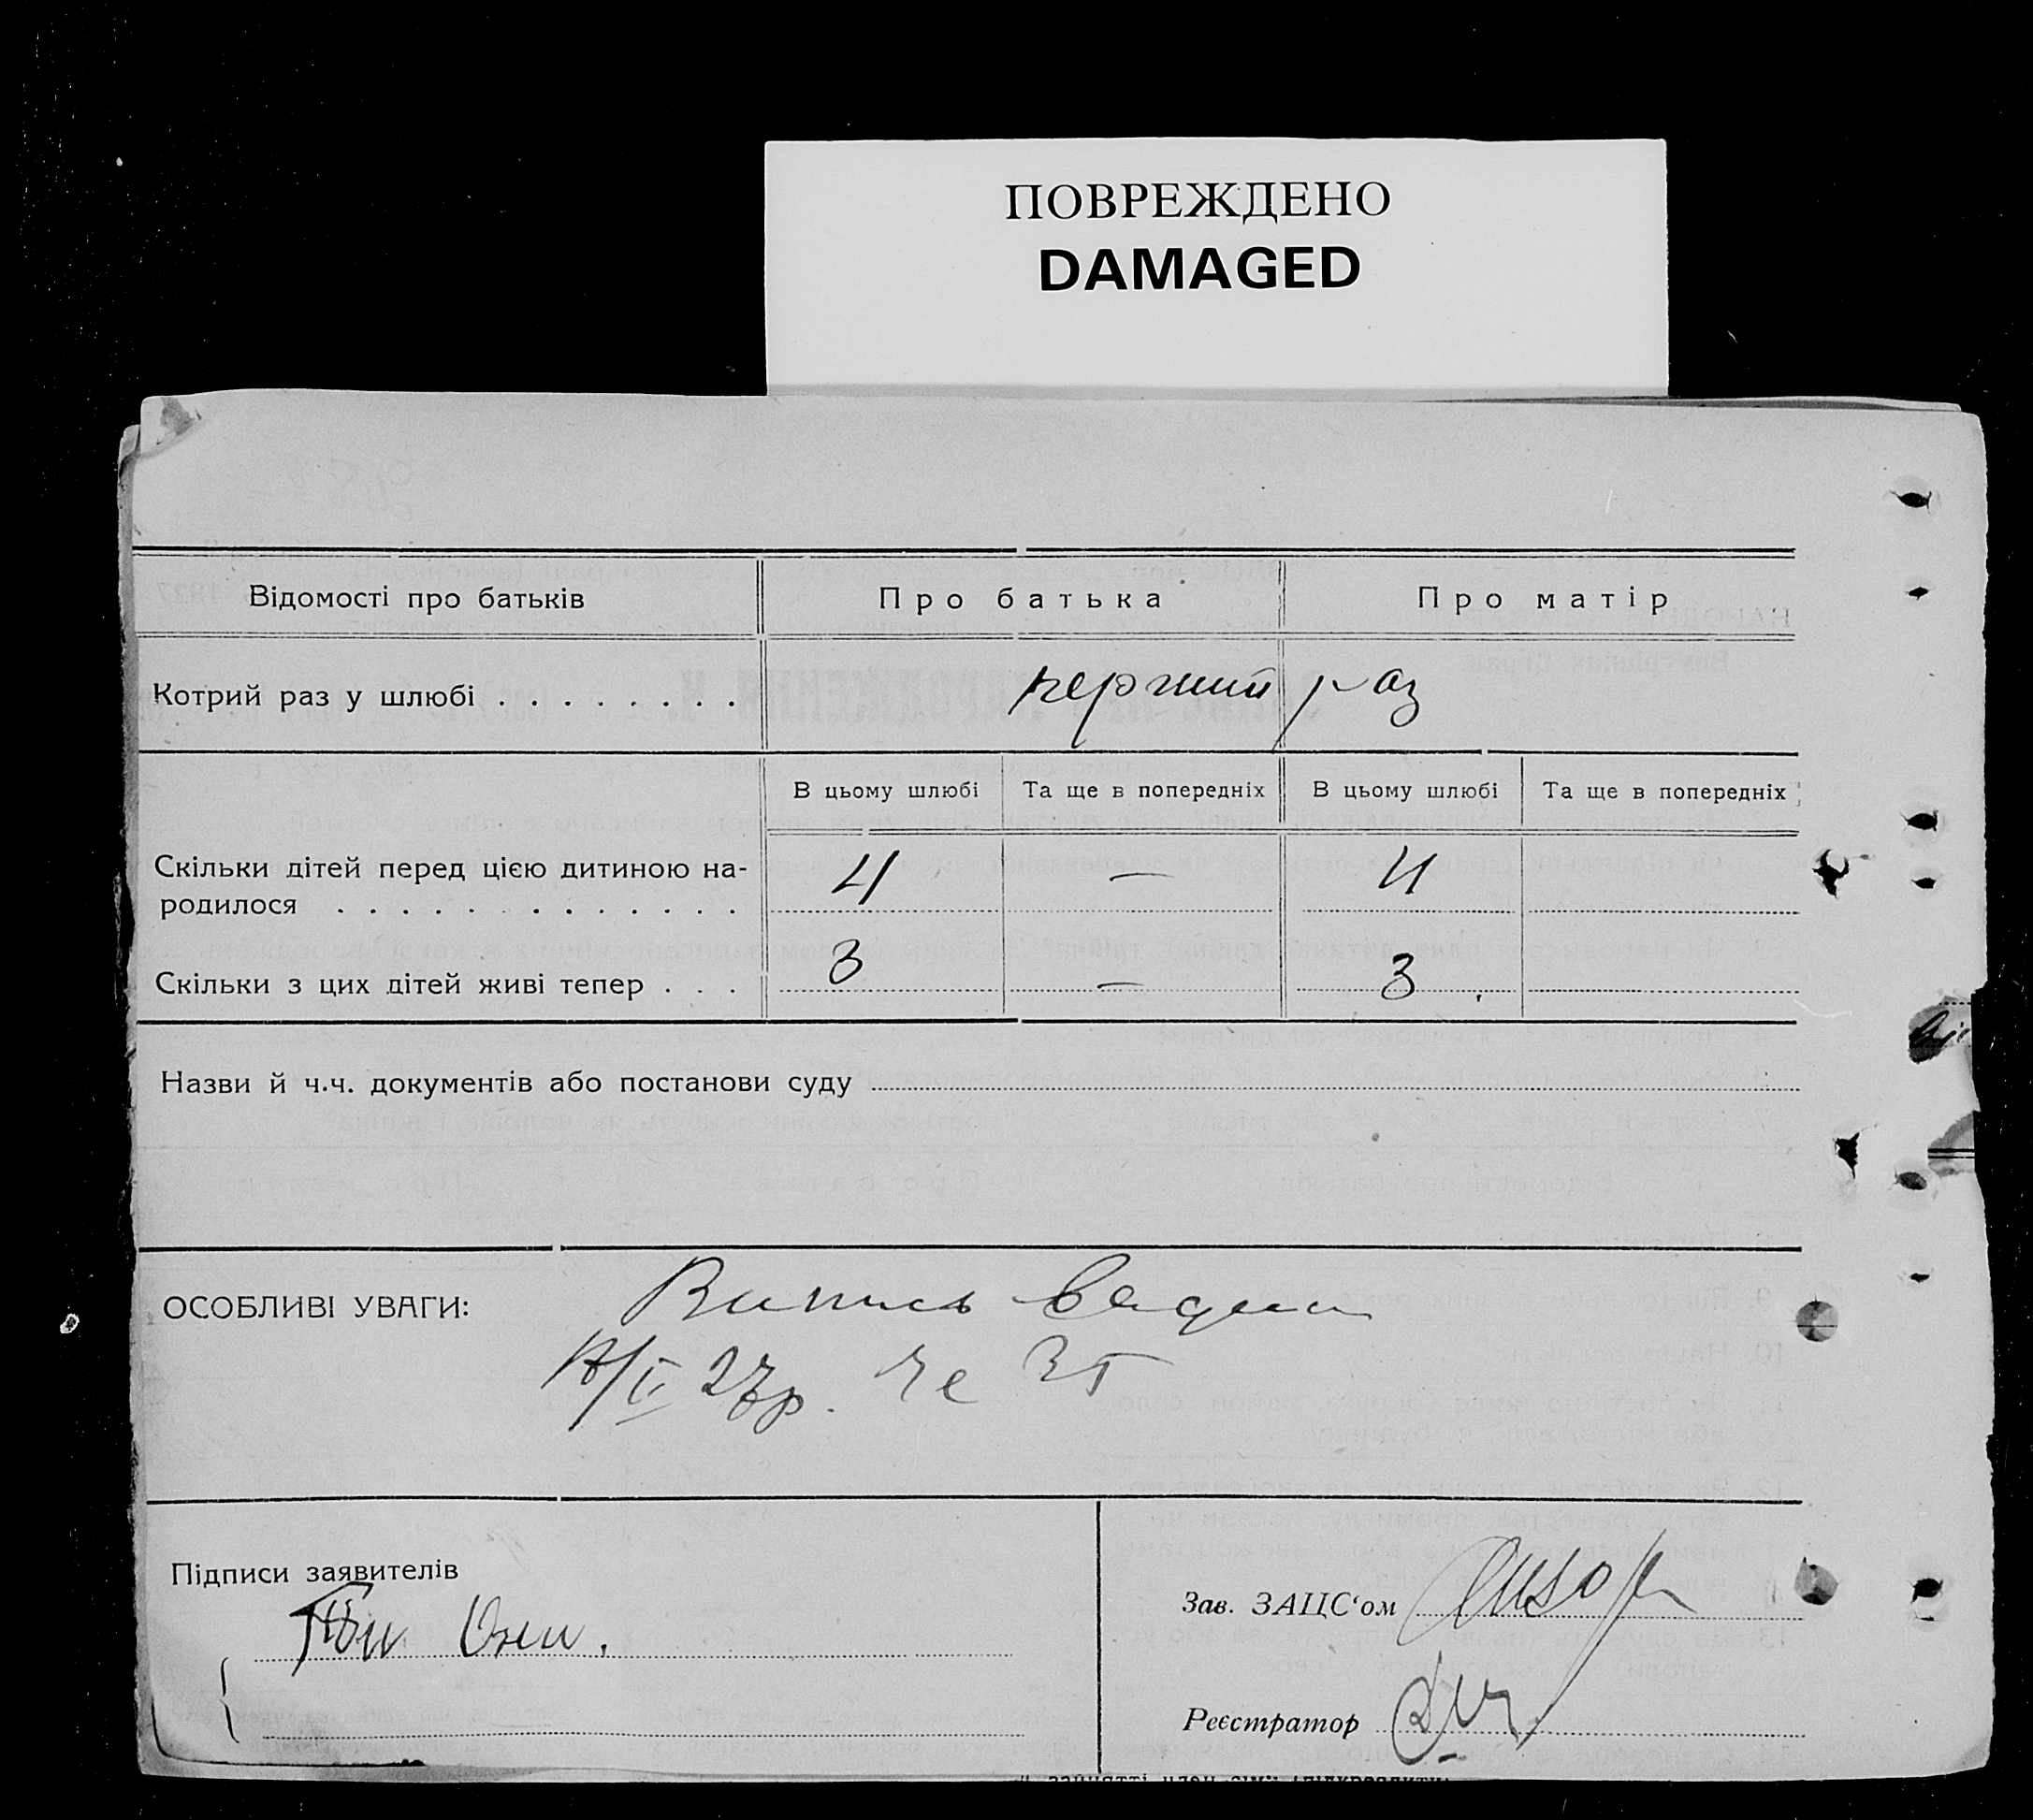 ПОВРЕЖДЕНО
DAMAGED
Відомості про батьків Про батька Про матір
Котрий раз у шлюбі . . . . . . . . перший раз
В цьому шлюбі Та ще в попередніх В цьому шлюбі Та ще в попередніх
Скільки дітей перед цією дитиною на-
родилося . . . . . . . . . . . . . 4 — 4
Скільки з цих дітей живі тепер . . . 3 — 3
Назви й ч.ч. документів або постанови суду
ОСОБЛИВІ УВАГИ: Випись
27р.
Підписи заявителів
Зав. ЗАЦС‘ом
Реєстратор